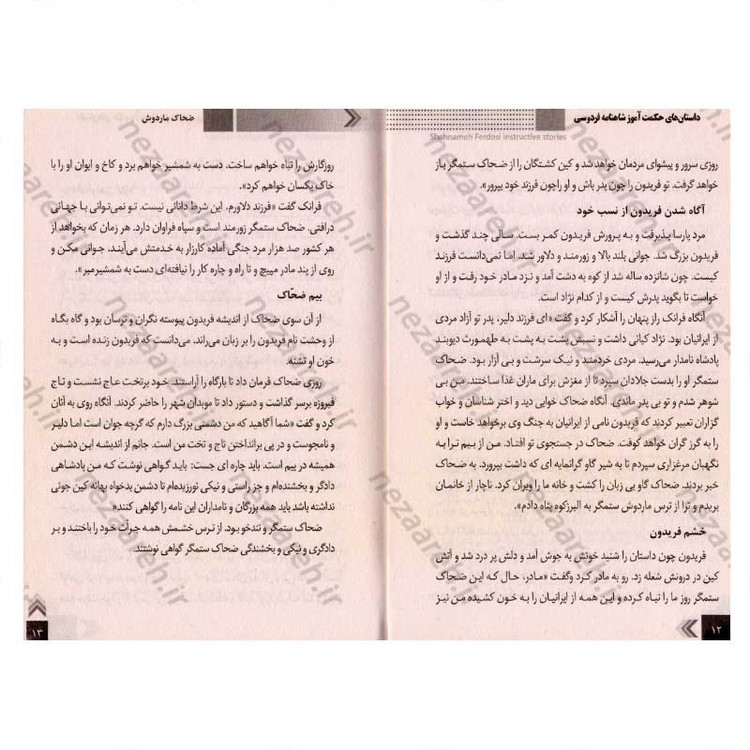 داستان‌های حکمت آموز شاهنامه فردوسی
Shahnameh Ferdosi instructive stories
روزی سرور و پیشوای مردمان خواهد شد و کین کشتگان را از ضحاک ستمگر باز
خواهد گرفت. تو فریدون را چون پدر باش و او راچون فرزند خود بپرور».
آگاه شدن فریدون از نسب خود
مرد پارسا پذیرفت و به پرورش فریدون کمر بست. سالی چند گذشت و
فریدون بزرگ شد. جوانی بلند بالا و زورمند و دلاور شد. اما نمی‌دانست فرزند
کیست. چون شانزده ساله شد از کوه به دشت آمد و نزد مادر خود رفت و از او
خواست تا بگوید پدرش کیست و از کدام نژاد است.
آنگاه فرانک راز پنهان را آشکار کرد و گفت «ای فرزند دلیر، پدر تو آزاد مردی
از ایرانیان بود. نژاد کیانی داشت و نسبش پشت به پشت به طهمورث دیوبند
پادشاه نامدار می‌رسید. مردی خردمند و نیک سرشت و بی آزار بود. ضحاک
ستمگر او را بدست جلادان سپرد تا از مغزش برای ماران غذا ساختند. من بی
شوهر شدم و تو بی پدر ماندی. آنگاه ضحاک خوابی دید و اختر شناسان و خواب
گزاران تعبیر کردند که فریدون نامی از ایرانیان به جنگ وی برخواهد خاست و او
را به گرز گران خواهد کوفت. ضحاک در جستجوی تو افتاد. من از بیم ترا به
نگهبان مرغزاری سپردم تا به شیر گاو گرانمایه ای که داشت بپرورد. به ضحاک
خبر بردند. ضحاک گاو بی زبان را کشت و خانه ما را ویران کرد. ناچار از خانمان
بریدم و ترا از ترس ماردوش ستمگر به البرزکوه پناه دادم».
خشم فریدون
فریدون چون داستان را شنید خونش به جوش آمد و دلش پر درد شد و آتش
کین در درونش شعله زد. رو به مادر کرد وگفت «مادر، حال که این ضحاک
ستمگر روز ما را تباه کرده و این همه از ایرانیان را به خون کشیده من نیز
۱۲
ضحاک ماردوش
روزگارش را تباه خواهم ساخت. دست به شمشیر خواهم برد و کاخ و ایوان او را با
خاک یکسان خواهم کرد».
فرانک گفت «فرزند دلاورم، این شرط دانائی نیست. تو نمی‌توانی با جهانی
درافتی. ضحاک ستمگر زورمند است و سپاه فراوان دارد. هر زمان که بخواهد از
هر کشور صد هزار مرد جنگی آماده کارزار به خدمتش می‌آیند. جوانی مکن و
روی از پند مادر مپیچ و تا راه و چاره کار را نیافته‌ای دست به شمشیرمبر».
بیم ضحّاک
از آن سوی ضحاک از اندیشه فریدون پیوسته نگران و ترسان بود و گاه بگاه
از وحشت نام فریدون را بر زبان می‌راند. می‌دانست که فریدون زنده است و به
خون او تشنه.
روزی ضحاک فرمان داد تا بارگاه را آراستند. خود برتخت عاج نشست و تاج
فیروزه برسر گذاشت و دستور داد تا موبدان شهر را حاضر کردند. آنگاه روی به آنان
کرد و گفت «شما آگاهید که من دشمنی بزرگ دارم که گرچه جوان است اما دلیر
و نامجوست و در پی برانداختن تاج و تخت من است. جانم از اندیشه این دشمن
همیشه در بیم است. باید چاره ای جست: باید گواهی نوشت که من پادشاهی
دادگر و بخشنده‌ام و جز راستی و نیکی نورزیده‌ام تا دشمن بدخواه بهانه کین جوئی
نداشته باشد باید همه بزرگان و نامداران این نامه را گواهی کنند»
ضحاک ستمگر و تندخو بود. از ترس خشمش همه جرأت خود را باختند و بر
دادگری و نیکی و بخشندگی ضحاک ستمگر گواهی نوشتند.
۱۳
nezaareh.ir